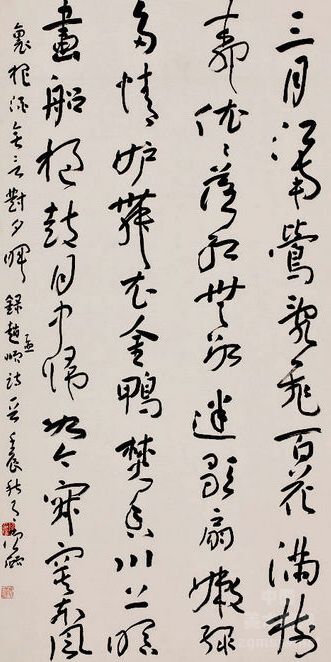 三月江南鶯亂飛百花滿樹
柳依依落紅無數迷歌扇嫩綠
多情妒舞衣金鴨焚香川上暝
畫船撾鼓月中歸如今寂寞東風
裏把酒無言對夕暉 錄趙孟頫詩 壬辰秋月